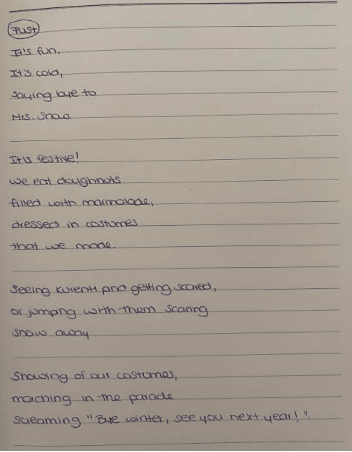 Pust
It's fun,
It's cold,
Saying bye to
Mrs. Snow.
It is festive!
We eat doughnuts
filled with marmalade,
dressed in costumes
that we made.
Seeing kurenti and getting scared,
or jumping with them scaring
snow away
Showing of our costumes,
marching in the parade
screaming "Bye winter, see you next year!".